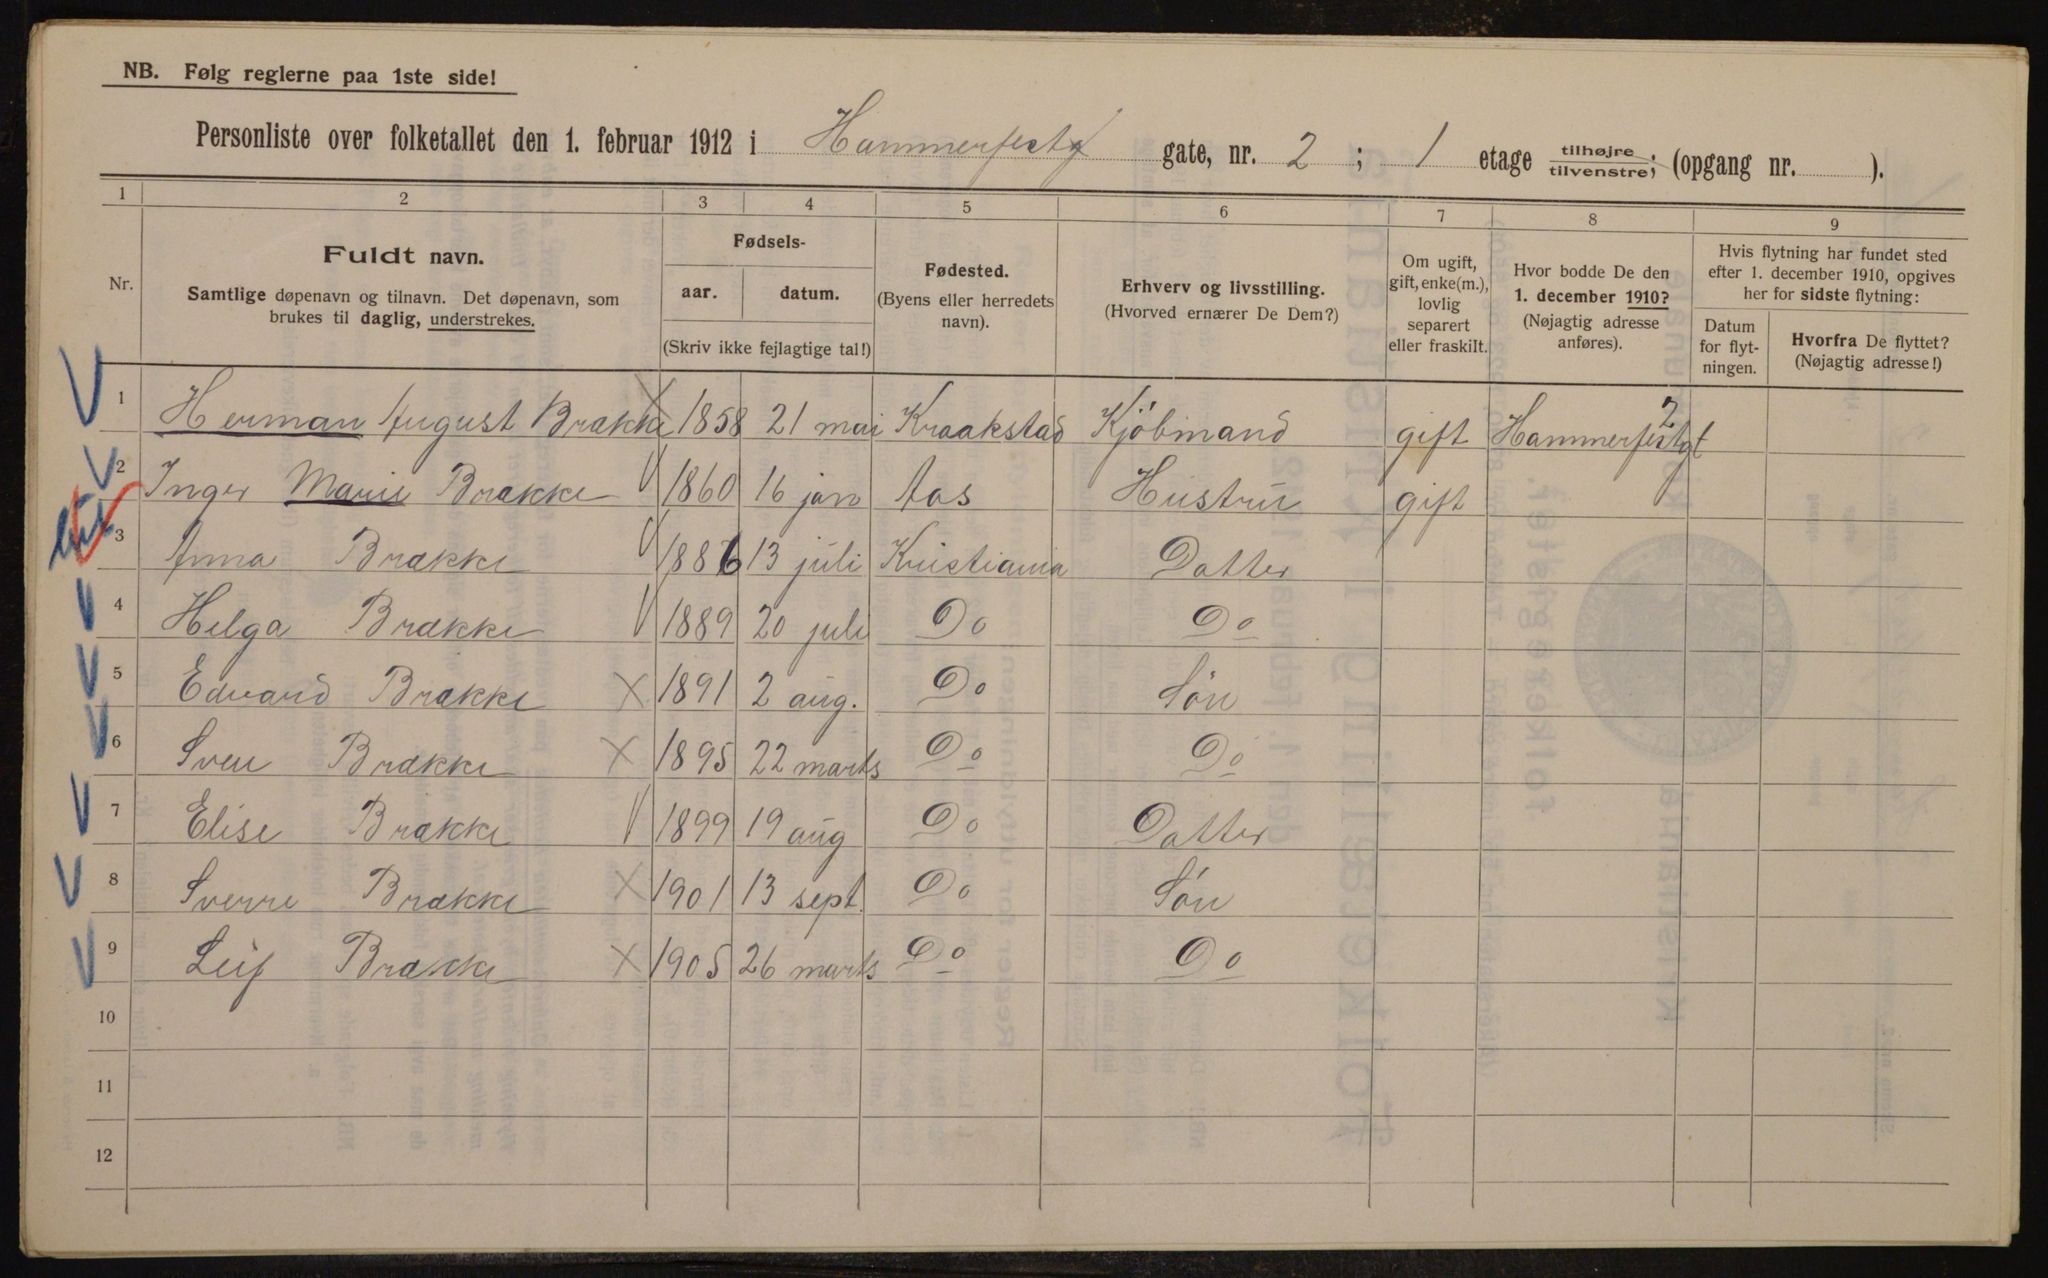 NB. Følg reglerne paa 1ste side!
Personliste over folketallet den 1. februar 1912 i Hammerfestg gate, nr. 2 ; 1 etage tilhøjre tilvenstre; (opgang nr. ).
1 2 3 4 5 6 7 8 9
Nr.
Fuldt navn.
Samtlige døpenavn og tilnavn. Det døpenavn, som
brukes til daglig, understrekes.
Fødsels-
aar. datum.
(Skriv ikke fejlagtige tal!)
Fødested.
(Byens eller herredets
navn).
Erhverv og livsstilling.
(Hvorved ernærer De Dem?)
Om ugift,
gift, enke(m.),
lovlig
separert
eller fraskilt.
Hvor bodde De den
1. december 1910?
(Nøjagtig adresse
anføres).
Hvis flytning har fundet sted
efter 1. december 1910, opgives
her for sidste flytning:
Datum
for flyt-
ningen.
Hvorfra De flyttet?
(Nøjagtig adresse!)
1 Herman August Brække 1858 21 mai Kraakstad Kjöbmand gift Hammerfestgt 2
2 Inger Marie Brække 1860 16 jan Aas Hustru gift
3 Anna Brække 1886 13 juli Kristiania Datter
4 Helga Brække 1889 20 juli Do Do
5 Edvard Brække 1891 2 aug. Do Sön
6 Sven Brække 1895 22 marts Do Do
7 Elise Brække 1899 19 aug Do Datter
8 Sverre Brække 1901 13 sept. Do Sön
9 Leif Brække 1905 26 marts Do Do
10
11
12